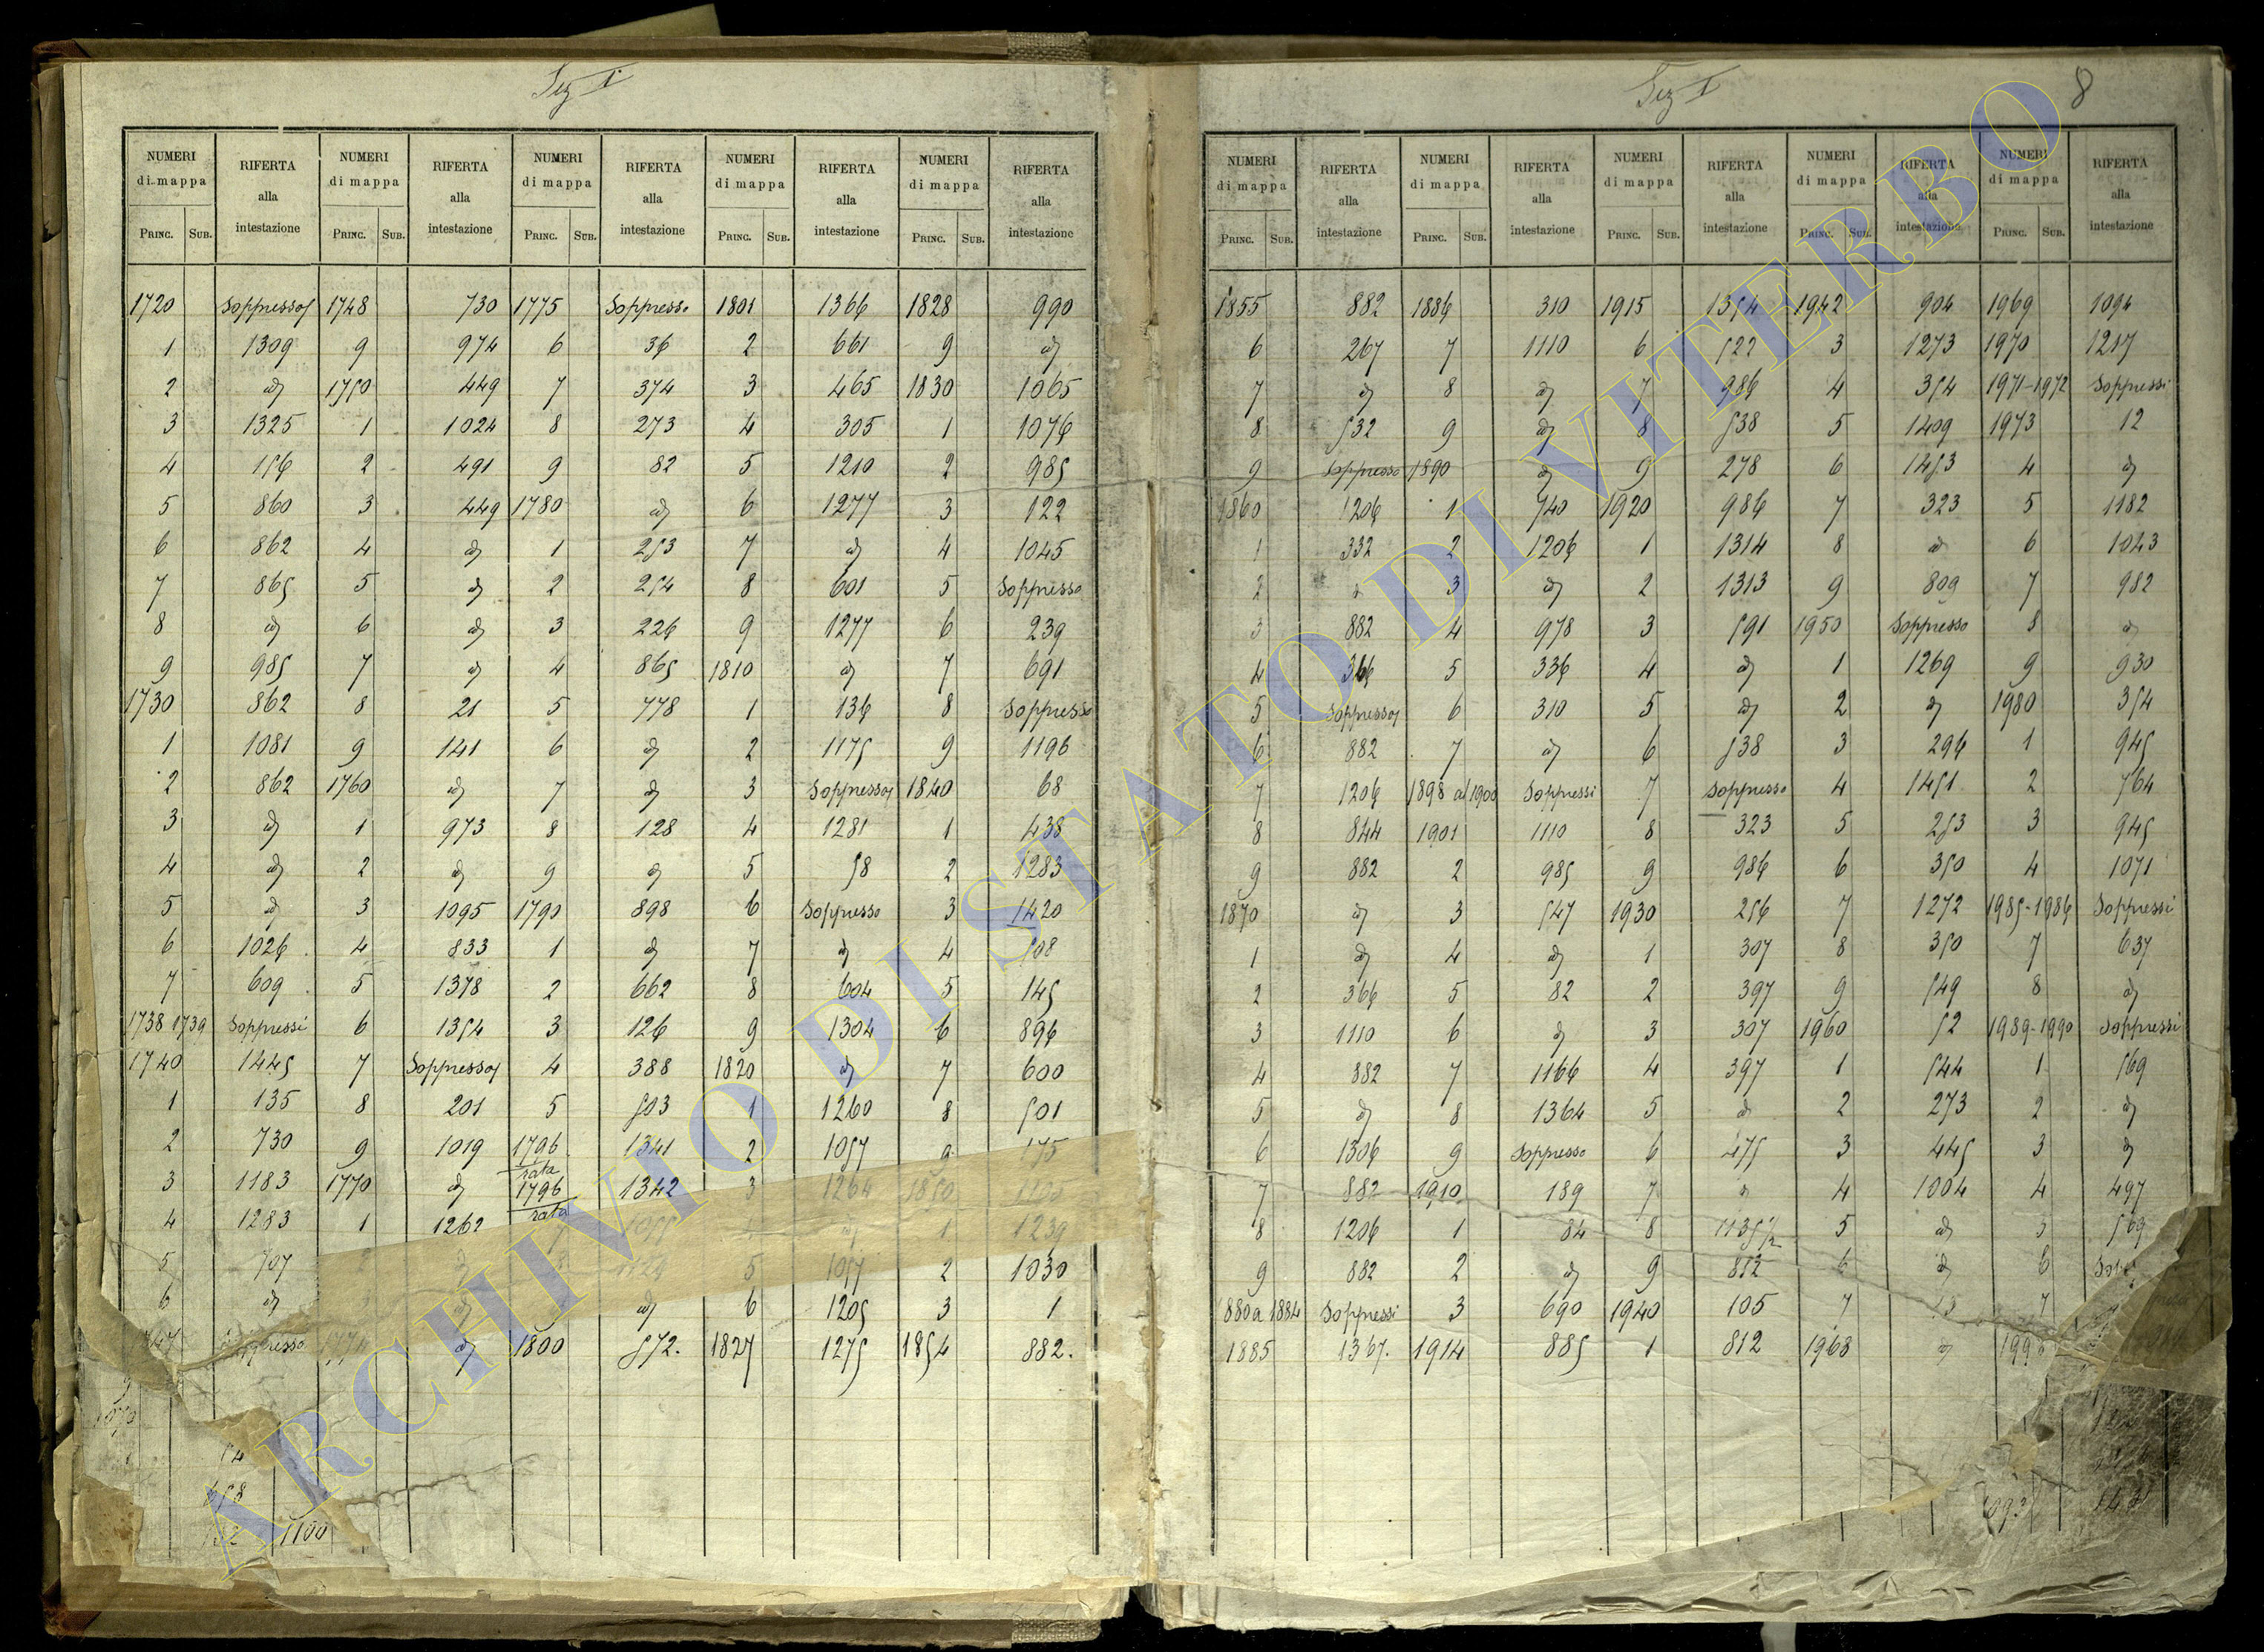 Sez I
NUMERI di mappa RIFERTA alla intestazione NUMERI di mappa RIFERTA alla intestazione NUMERI di mappa RIFERTA alla intestazione NUMERI di mappa RIFERTA alla intestazione NUMERI di mappa RIFERTA alla intestazione
PRINC. SUB. PRINC. SUB. PRINC. SUB. PRINC. SUB. PRINC. SUB.
1720 Soppresso 1748 730 1775 Soppresso 1801 1366 1828 990
1 1309 9 974 6 36 2 661 9 id
2 id 1750 449 7 374 3 465 1830 1065
3 1325 1 1024 8 273 4 305 1 1076
4 156 2 491 9 82 5 1210 2 985
5 860 3 449 1780 id 6 1277 3 122
6 862 4 id 1 253 7 id 4 1045
7 865 5 id 2 254 8 601 5 Soppresso
8 id 6 id 3 226 9 1277 6 239
9 985 7 id 4 865 1810 id 7 691
1730 862 8 21 5 778 1 136 8 Soppresso
1 1081 9 141 6 id 2 1175 9 1196
2 862 1760 id 7 id 3 Soppresso 1840 68
3 id 1 973 8 128 4 1281 1 438
4 id 2 id 9 id 5 58 2 1283
5 id 3 1095 1790 898 6 Soppresso 3 1420
6 1026 4 833 1 id 7 id 4 508
7 609 5 1378 2 662 8 604 5 145
1738 1739 Soppressi 6 1354 3 126 9 1304 6 896
1740 1445 7 Soppresso 4 388 1820 id 7 600
1 135 8 201 5 503 1 1260 8 501
2 730 9 1019 1796 rata 1341 2 1057 9 175
3 1183 1770 id 1796 rata 1342 3 1264 1850
4 1283 1 1262 7 id 1 1239
5 707 id 5 1057 2 1030
6 id id id 6 1205 3 1
id 1800 572. 1827 1275 1854 882.
1100
Sez I
8
NUMERI di mappa RIFERTA alla intestazione NUMERI di mappa RIFERTA alla intestazione NUMERI di mappa RIFERTA alla intestazione NUMERI di mappa RIFERTA alla intestazione NUMERI di mappa RIFERTA alla intestazione
PRINC. SUB. PRINC. SUB. PRINC. SUB. PRINC. SUB. PRINC. SUB.
1855 882 1886 310 1915 1354 1942 904 1969 1094
6 267 7 1110 6 522 3 1273 1970 1217
7 id 8 id 7 986 4 354 1971-1972 Soppressi
8 532 9 id 8 538 5 1409 1973 12
9 Soppresso 1890 id 9 278 6 1453 4 id
1860 1206 1 740 1920 986 7 323 5 1182
1 332 2 1206 1 1314 8 id 6 1043
2 id 3 id 2 1313 9 809 7 982
3 882 4 978 3 591 1950 Soppresso 8 id
4 366 5 336 4 id 1 1269 9 930
5 Soppresso 6 310 5 id 2 id 1980 354
6 882 7 id 6 538 3 296 1 945
7 1206 1898 a 1900 Soppressi 7 Soppresso 4 1451 2 764
8 844 1901 1110 8 323 5 253 3 945
9 882 2 985 9 986 6 350 4 1071
1870 id 3 547 1930 256 7 1272 1985-1986 Soppressi
1 id 4 id 1 307 8 350 7 637
2 366 5 82 2 397 9 549 8 id
3 1110 6 id 3 307 1960 52 1989-1990 Soppressi
4 882 7 1166 4 397 1 544 1 569
5 id 8 1364 5 id 2 273 2 id
6 1306 9 Soppresso 6 475 3 445 3 id
7 882 1910 189 7 id 4 1004 4 497
8 1206 1 84 8 1135 1/2 5 id 5 569
9 882 2 id 9 852 6 id 6
1880 a 1884 Soppressi 3 690 1940 105 7 7
1885 1367. 1914 885 1 812 1968 id
ARCHIVIO DI STATO DI VITERBO